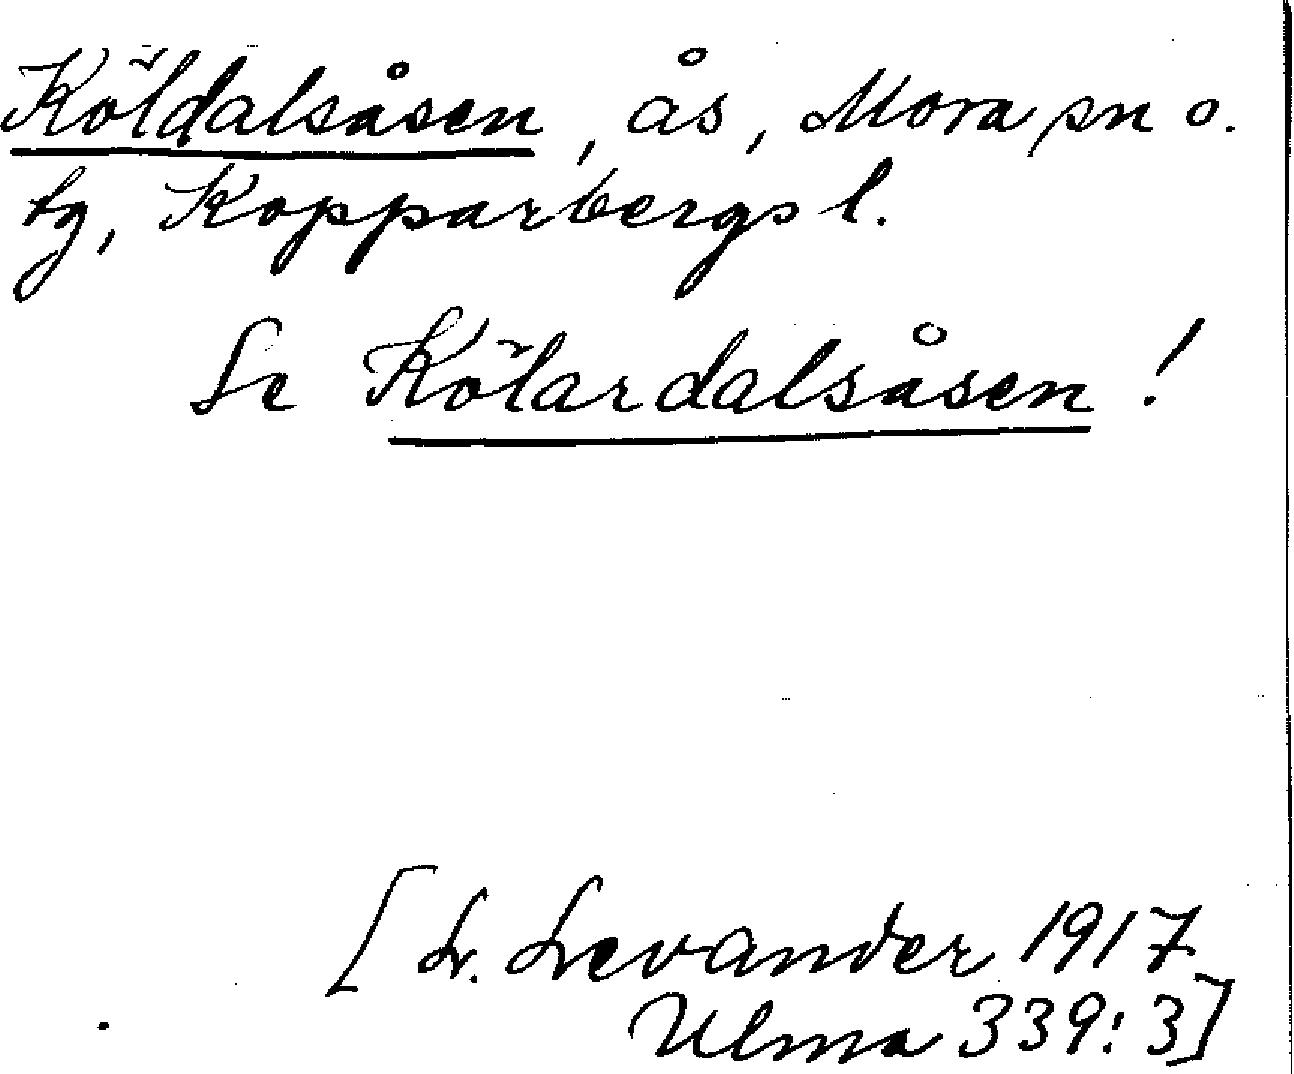 Köldalsåsen, ås, Mora sn o.
tg, Kopparbergs l.
Se Kölardalsåsen!
[L. Levander 1917
Ulma 339:3]